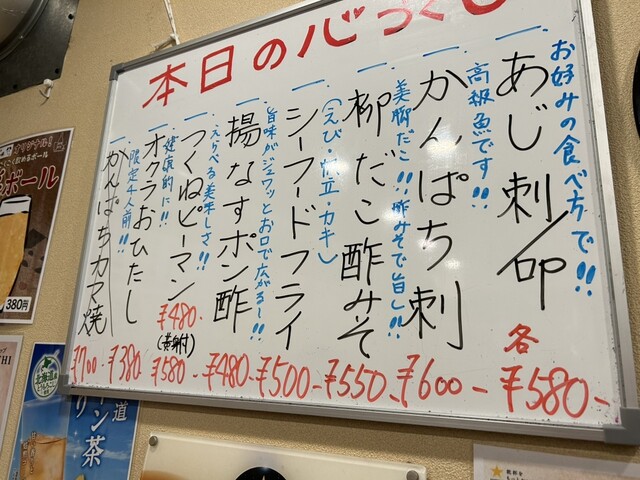 本日の心づくし
お好みの食べ方で!!
一 あじ刺/叩 各 ¥580-
高級魚です!!
一 かんぱち刺 ¥600-
美腕だこ!!酢みそで旨し!!
一 柳だこ酢みそ ¥550-
一 シーフードフライ ¥500-
(えび・帆立・カキ)
一 揚なすポン酢 ¥480-
旨味がジュワッとお口で広がるー!!
一 つくねピーマン ¥480-
(黄身付) ¥580-
えらべる美味しさ!!
一 オクラおひたし ¥380-
健康的に!!
一 かんぱちカマ焼 ¥700-
限定4人前!!
ボール
380円
道
ン茶